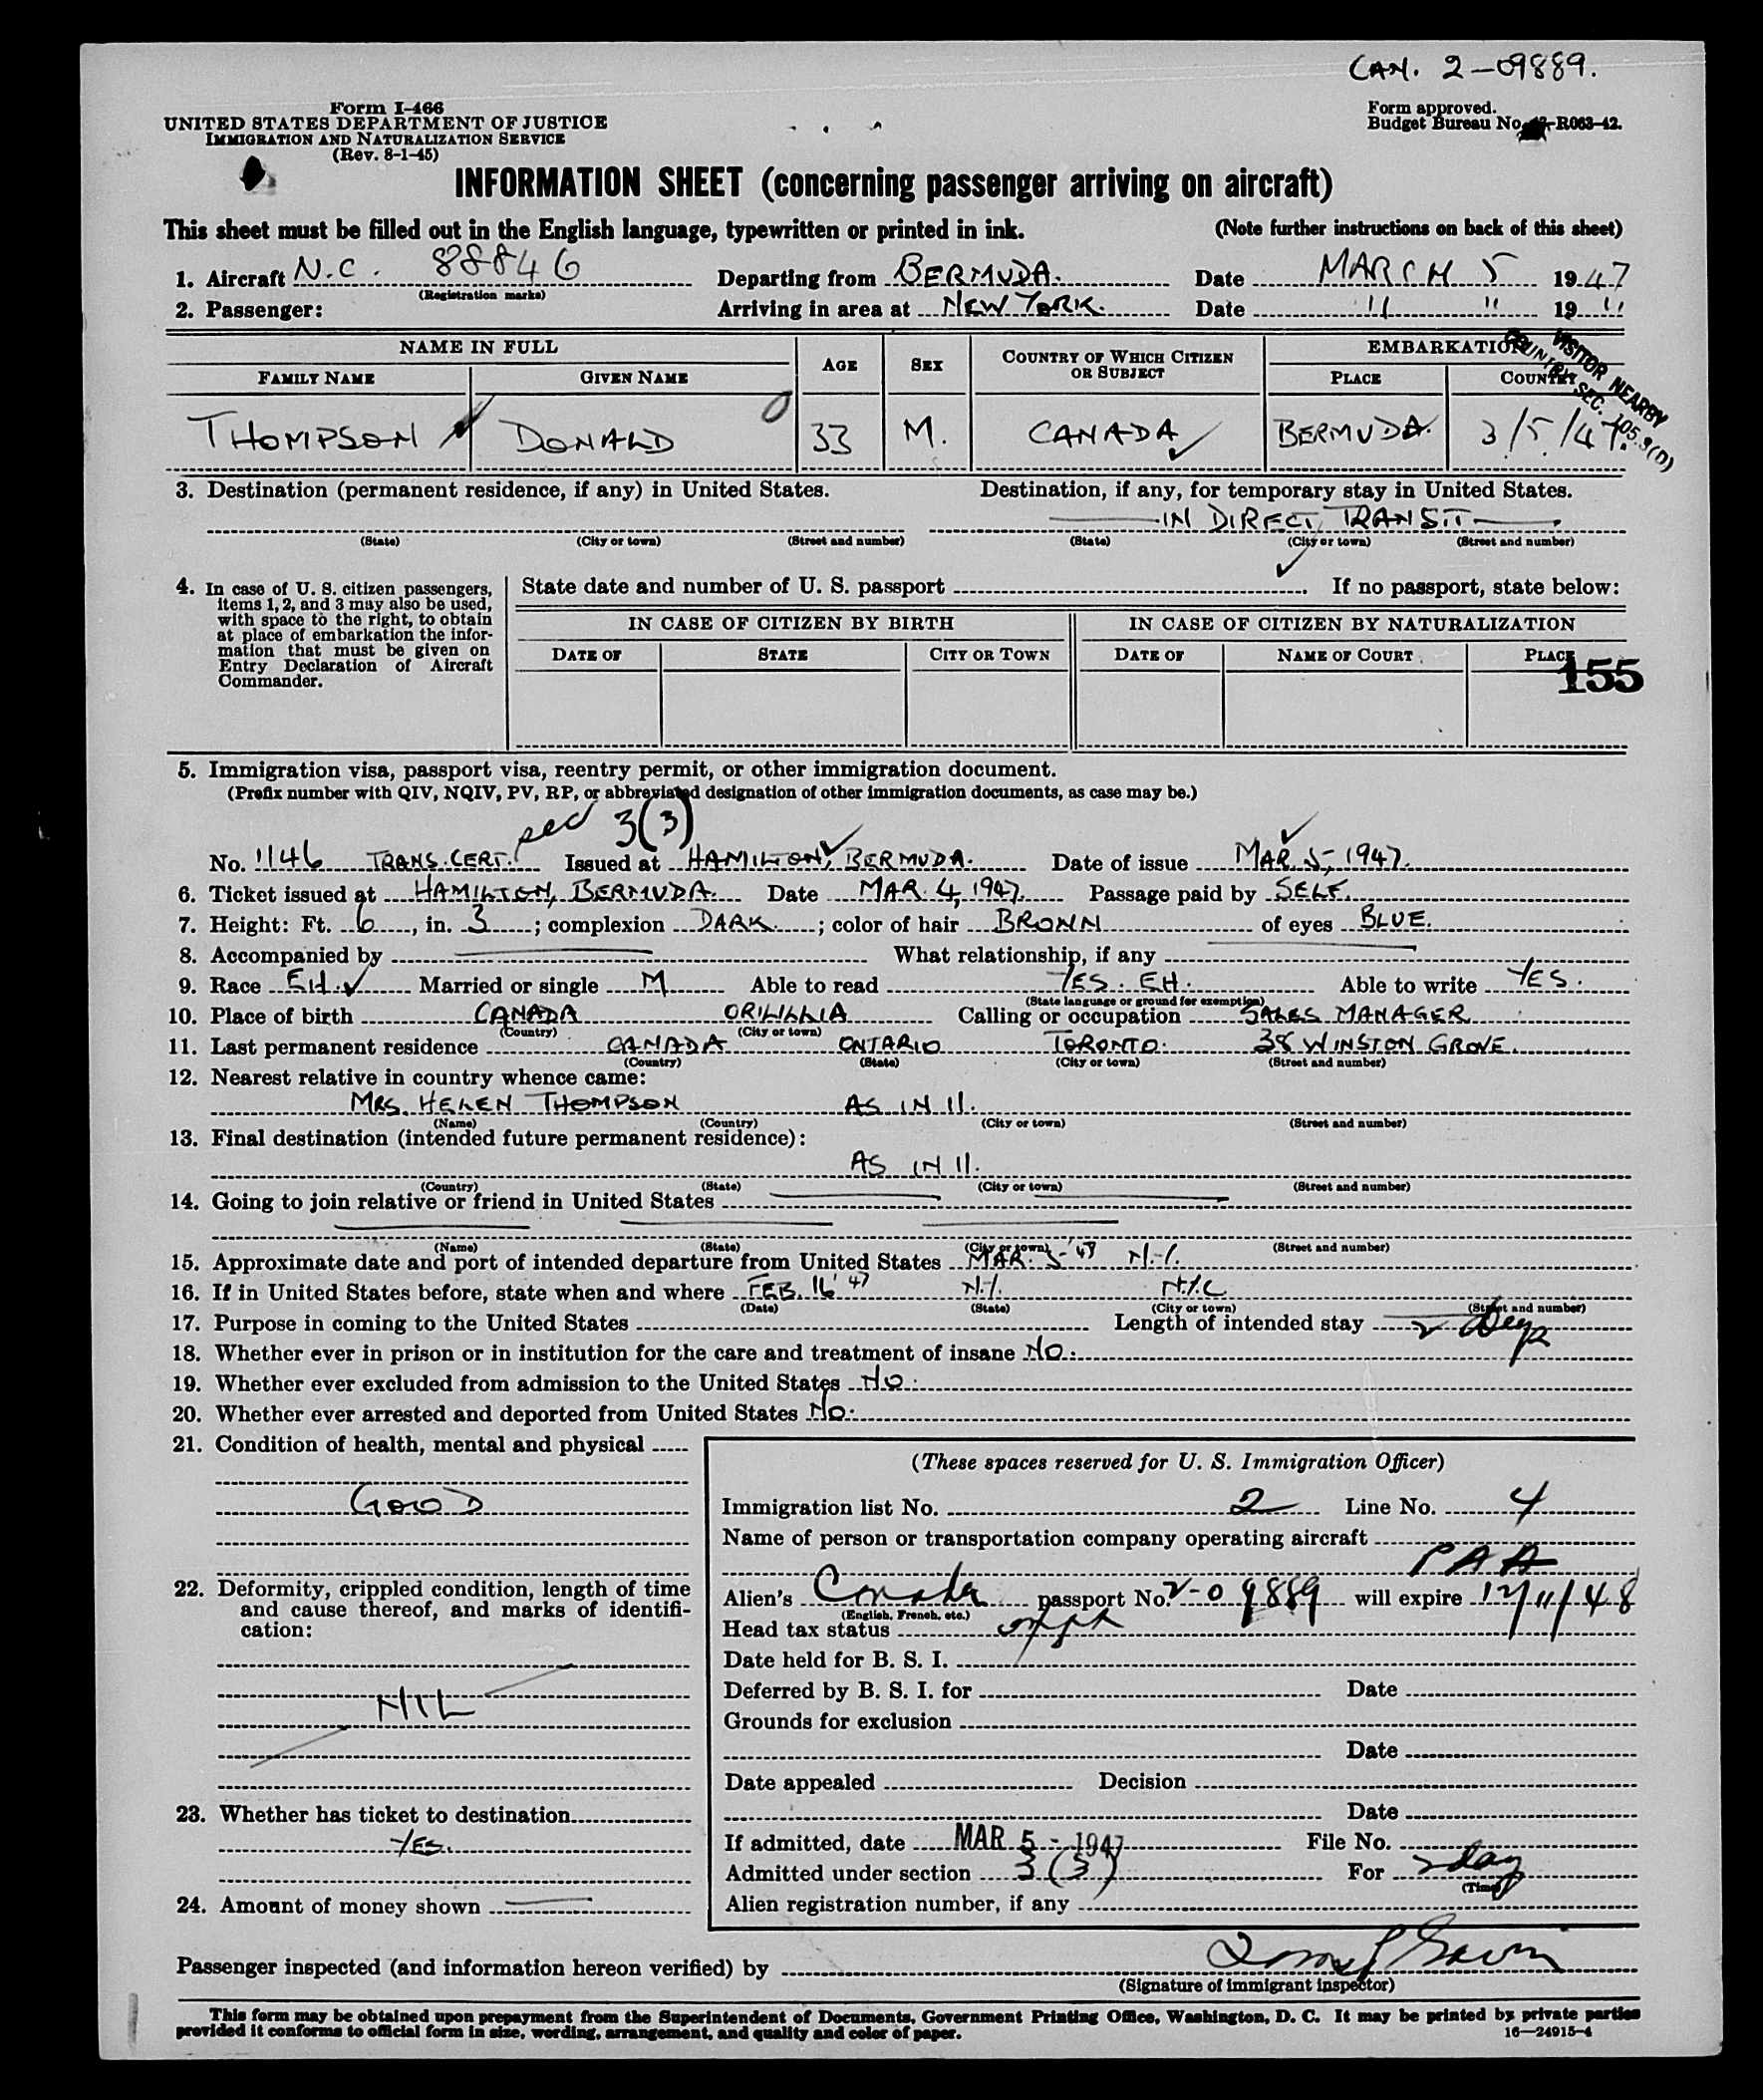 CAN. 2-09889.
Form I-466
UNITED STATES DEPARTMENT OF JUSTICE
IMMIGRATION AND NATURALIZATION SERVICE
(Rev. 8-1-45)
Form approved.
Budget Bureau No. -R063-42.
INFORMATION SHEET (concerning passenger arriving on aircraft)
This sheet must be filled out in the English language, typewritten or printed in ink. (Note further instructions on back of this sheet)
1. Aircraft N.C. 88846 Departing from BERMUDA. Date MARCH 5 1947
(Registration marks)
2. Passenger: Arriving in area at NEW YORK. Date " " 19 "
NAME IN FULL AGE SEX COUNTRY OF WHICH CITIZEN OR SUBJECT EMBARKATION
FAMILY NAME GIVEN NAME PLACE COUNTRY
VISITOR NEARBY
COUNTRY SEC. 105.3(D)
THOMPSON DONALD 33 M. CANADA BERMUDA. 3/5/47.
3. Destination (permanent residence, if any) in United States. Destination, if any, for temporary stay in United States.
IN DIRECT TRANSIT
(State) (City or town) (Street and number) (State) (City or town) (Street and number)
4. In case of U. S. citizen passengers, items 1, 2, and 3 may also be used, with space to the right, to obtain at place of embarkation the information that must be given on Entry Declaration of Aircraft Commander.
State date and number of U. S. passport . If no passport, state below:
IN CASE OF CITIZEN BY BIRTH IN CASE OF CITIZEN BY NATURALIZATION
DATE OF STATE CITY OR TOWN DATE OF NAME OF COURT PLACE
155
5. Immigration visa, passport visa, reentry permit, or other immigration document.
(Prefix number with QIV, NQIV, PV, RP, or abbreviated designation of other immigration documents, as case may be.)
3(3)
No. 1146 TRANS. CERT. Issued at HAMILTON, BERMUDA. Date of issue MAR 5, 1947.
6. Ticket issued at HAMILTON, BERMUDA. Date MAR. 4, 1947. Passage paid by SELF.
7. Height: Ft. 6, in. 3; complexion DARK.; color of hair BROWN of eyes BLUE.
8. Accompanied by What relationship, if any
9. Race EH. Married or single M Able to read YES. EH. Able to write YES.
(State language or ground for exemption)
10. Place of birth CANADA ORILLIA Calling or occupation SALES MANAGER
(Country) (City or town)
11. Last permanent residence CANADA ONTARIO TORONTO. 38 WINSTON GROVE.
(Country) (State) (City or town) (Street and number)
12. Nearest relative in country whence came:
MRS. HELEN THOMPSON AS IN 11.
(Name) (Country) (City or town) (Street and number)
13. Final destination (intended future permanent residence):
AS IN 11.
(Country) (State) (City or town) (Street and number)
14. Going to join relative or friend in United States
(Name) (State) (City or town) (Street and number)
15. Approximate date and port of intended departure from United States MAR. 5- N.Y.
16. If in United States before, state when and where FEB. 16 '47 N.Y. N.Y.C
(Date) (State) (City or town) (Street and number)
17. Purpose in coming to the United States Length of intended stay 2 days
18. Whether ever in prison or in institution for the care and treatment of insane NO.
19. Whether ever excluded from admission to the United States NO.
20. Whether ever arrested and deported from United States NO.
21. Condition of health, mental and physical
GOOD
22. Deformity, crippled condition, length of time and cause thereof, and marks of identification:
NIL
23. Whether has ticket to destination
YES.
24. Amount of money shown
(These spaces reserved for U. S. Immigration Officer)
Immigration list No. 2 Line No. 4
Name of person or transportation company operating aircraft
PAA
Alien's Canada passport No. 2-09889 will expire 12/11/48
(English, French, etc.)
Head tax status
Date held for B. S. I.
Deferred by B. S. I. for Date
Grounds for exclusion
Date
Date appealed Decision
Date
If admitted, date MAR 5 - 1947 File No.
Admitted under section 3(3) For 2 day
(Time)
Alien registration number, if any
Passenger inspected (and information hereon verified) by
(Signature of immigrant inspector)
This form may be obtained upon prepayment from the Superintendent of Documents, Government Printing Office, Washington, D. C. It may be printed by private parties
provided it conforms to official form in size, wording, arrangement, and quality and color of paper. 16—24915-4